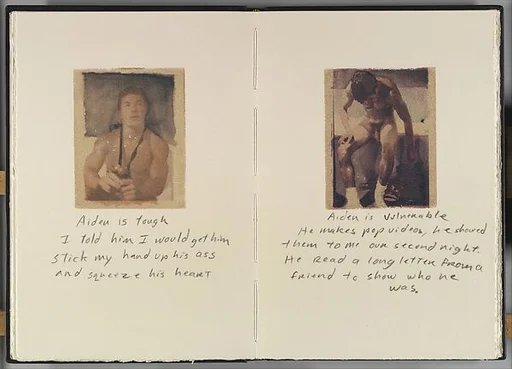 Aiden is tough
I told him I would get him
stick my hand up his ass
and squeeze his heart
Aiden is vulnerable
He makes pop videos, he showed
them to me our second night.
He read a long letter from a
friend to show who he
was.